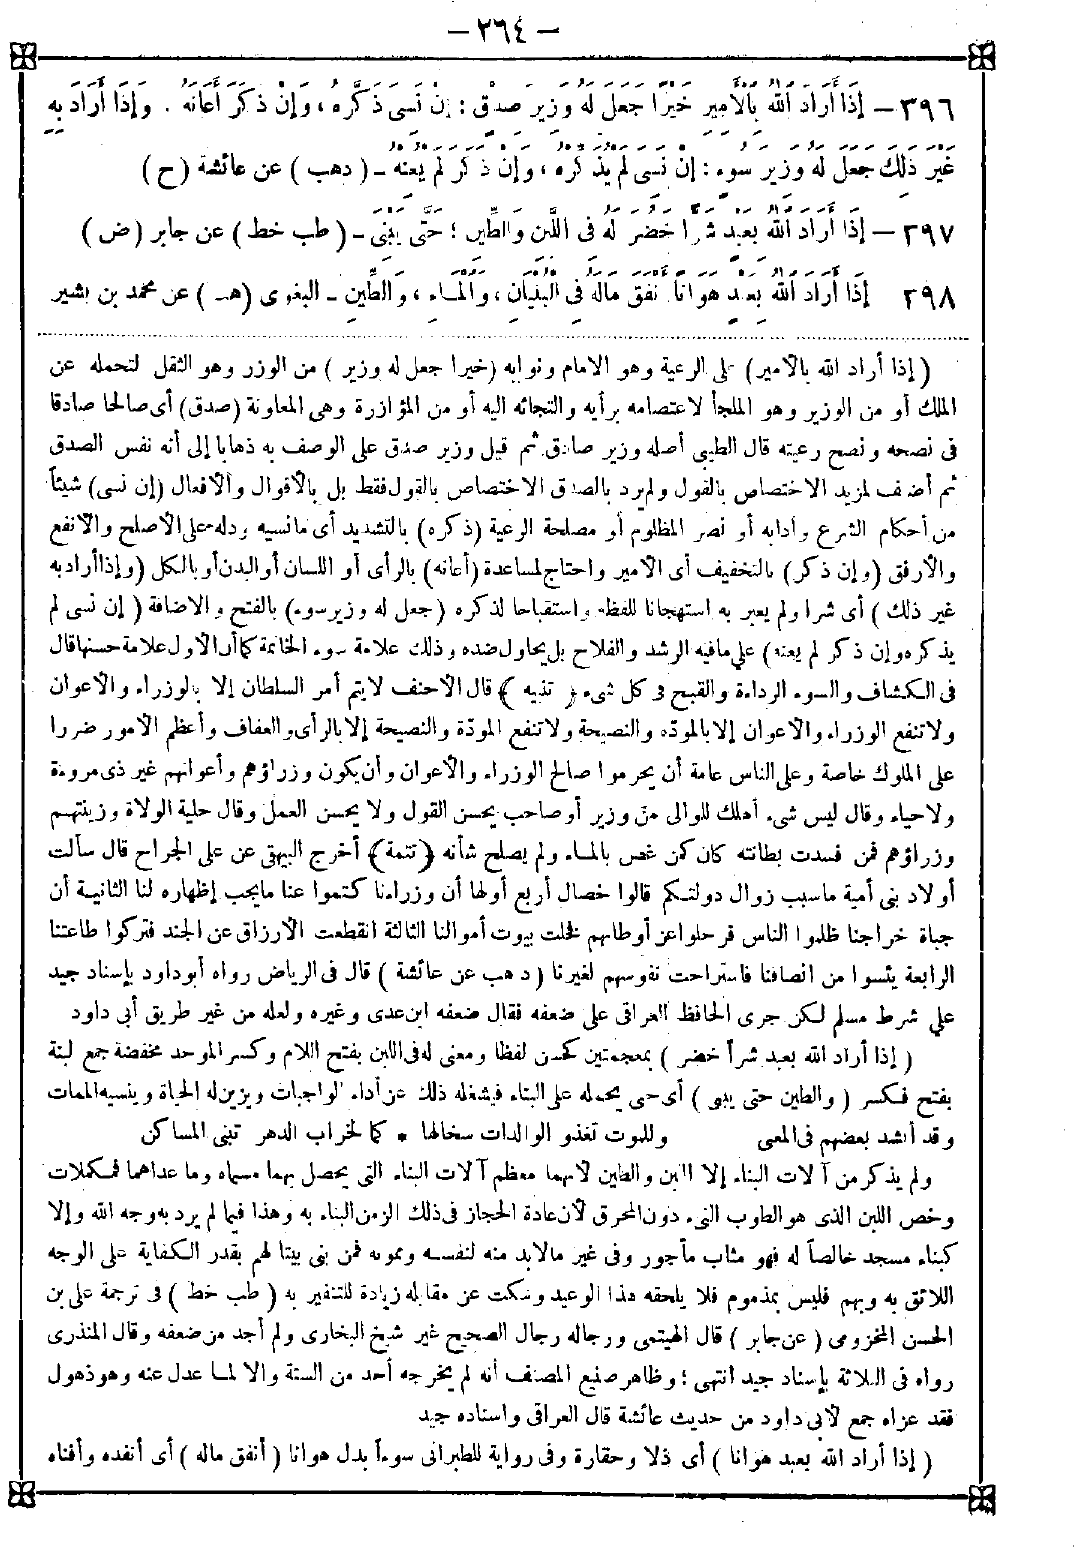 – ٢٦٤ –
٣٩٦ – إِذَا أَرَادَ اللّٰهُ بِالْأَمِيرِ خَيْرًا جَعَلَ لَهُ وَزِيرَ صِدْقٍ : إِنْ نَسِىَ ذَكَّرَهُ ، وَإِنْ ذَكَرَ أَعَانَهُ . وَإِذَا أَرَادَ بِهِ
غَيْرَ ذٰلِكَ جَعَلَ لَهُ وَزِيرَ سُوءٍ : إِنْ نَسِىَ لَمْ يُذَكِّرْهُ ، وَإِنْ ذَكَرَ لَمْ يُعِنْهُ – ( د هب ) عن عائشة (ح )
٣٩٧ – إِذَا أَرَادَ اللّٰهُ بِعَبْدٍ شَرًّا خَضَّرَ لَهُ فِى اللَّبِنِ وَالطِّينِ ؛ حَتَّى يَبْنِىَ – ( طب خط ) عن جابر ( ض )
٣٩٨ إِذَا أَرَادَ اللّٰهُ بِعَبْدٍ هَوَانًا أَنْفَقَ مَالَهُ فِى الْبُنْيَانِ ، وَالْمَاءِ ، وَالطِّينِ – البغوى ( هب ) عن محمد بن بشير
( إذا أراد الله بالأمير ) على الرعية وهو الامام ونوابه (خيرا جعل له وزير ) من الوزر وهو الثقل لتحمله عن
الملك أو من الوزير وهو الملجأ لاعتصامه برأيه والتجائه اليه أو من المؤازرة وهى المعاونة (صدق) أى صالحا صادقا
فى نصحه ونصح رعيته قال الطيبى أصله وزير صادق ثم قيل وزير صدق على الوصف به ذهابا إلى أنه نفس الصدق
ثم أضيف لمزيد الاختصاص بالقول ولم يرد بالصدق الاختصاص بالقول فقط بل بالأقوال والأفعال (إن نسى) شيئاً
من أحكام الشرع وآدابه أو نصر المظلوم أو مصلحة الرعية (ذكره) بالتشديد أى ما نسيه ودله على الأصلح والأنفع
والأرفق (وإن ذكر) بالتخفيف أى الأمير واحتاج لمساعدة (أعانه) بالرأى أو اللسان أو البدن أو بالكل (وإذا أراد به
غير ذلك ) أى شرا ولم يعبر به استهجانا للفظه واستقباحا لذكره (جعل له وزير سوء) بالفتح والاضافة ( إن نسى لم
يذكره وإن ذكر لم يعنه) على ما فيه الرشد والفلاح بل يحاول ضده وذلك علامة سوء الخاتمة كما أن الأول علامة حسنها قال
فى الكشاف والسوء الرداءة والقبح فى كل شىء ( تنبيه ) قال الأحنف لا يتم أمر السلطان إلا بالوزراء والأعوان
ولا تنفع الوزراء والأعوان إلا بالمودة والنصيحة ولا تنفع المودّة والنصيحة إلا بالرأى والعفاف وأعظم الأمور ضررا
على الملوك خاصة وعلى الناس عامة أن يحرموا صالح الوزراء والأعوان وأن يكون وزراؤهم وأعوانهم غير ذى مروءة
ولا حياء وقال ليس شىء أهلك للوالى من وزير أو صاحب يحسن القول ولا يحسن العمل وقال حلية الولاة وزينتهم
وزراؤهم فمن فسدت بطانته كان كمن غص بالماء ولم يصلح شأنه ( تتمة ) أخرج البيهقى عن على الجراح قال سألت
أولاد بنى أمية ما سبب زوال دولتكم قالوا خصال أربع أولها أن وزراءنا كتموا عنا ما يجب إظهاره لنا الثانية أن
جباة خراجنا ظلموا الناس فرحلوا عن أوطانهم فخلت بيوت أموالنا الثالثة انقطعت الأرزاق عن الجند فتركوا طاعتنا
الرابعة يئسوا من انصافنا فاستراحت نفوسهم لغيرنا ( د هب عن عائشة ) قال فى الرياض رواه أبو داود بإسناد جيد
على شرط مسلم لكن جرى الحافظ العراقى على ضعفه فقال ضعفه ابن عدى وغيره ولعله من غير طريق أبى داود
( إذا أراد الله بعبد شراً خضر ) بمعجمتين كحسن لفظا ومعنى له فى اللبن بفتح اللام وكسر الموحد مخففة جمع لبنة
بفتح فكسر ( والطين حتى يبنى ) أى حتى يحمله على البناء فيشغله ذلك عن أداء الواجبات ويزين له الحياة وينسيه الممات
وقد أنشد بعضهم فى المعنى وللموت تغذو الوالدات سخالها * كما لخراب الدهر تبنى المساكن
ولم يذكر من آلات البناء إلا اللبن والطين لأنهما معظم آلات البناء التى يحصل بهما مسماه وما عداهما فمكملات
وخص اللبن الذى هو الطوب النىء دون المحرق لأن عادة الحجاز فى ذلك الزمن البناء به وهذا فيما لم يرد به وجه الله وإلا
كبناء مسجد خالصاً له فهو مثاب مأجور وفى غير ما لابد منه لنفسه وممونه فمن بنى بيتا لهم بقدر الكفاية على الوجه
اللائق به وبهم فليس بمذموم فلا يلحقه هذا الوعيد وسكت عن مقابله زيادة للتنفير به ( طب خط ) فى ترجمة على بن
الحسن المخزومى ( عن جابر ) قال الهيتمى ورجاله رجال الصحيح غير شيخ البخارى ولم أجد من ضعفه وقال المنذرى
رواه فى الثلاثة بإسناد جيد انتهى ؛ وظاهر صنيع المصنف أنه لم يخرجه أحد من الستة والا لما عدل عنه وهو ذهول
فقد عزاه جمع لأبى داود من حديث عائشة قال العراقى واسناده جيد
( إذا أراد الله بعبد هوانا ) أى ذلا وحقارة وفى رواية للطبرانى سوءاً بدل هوانا ( أنفق ماله ) أى أنفده وأفناه